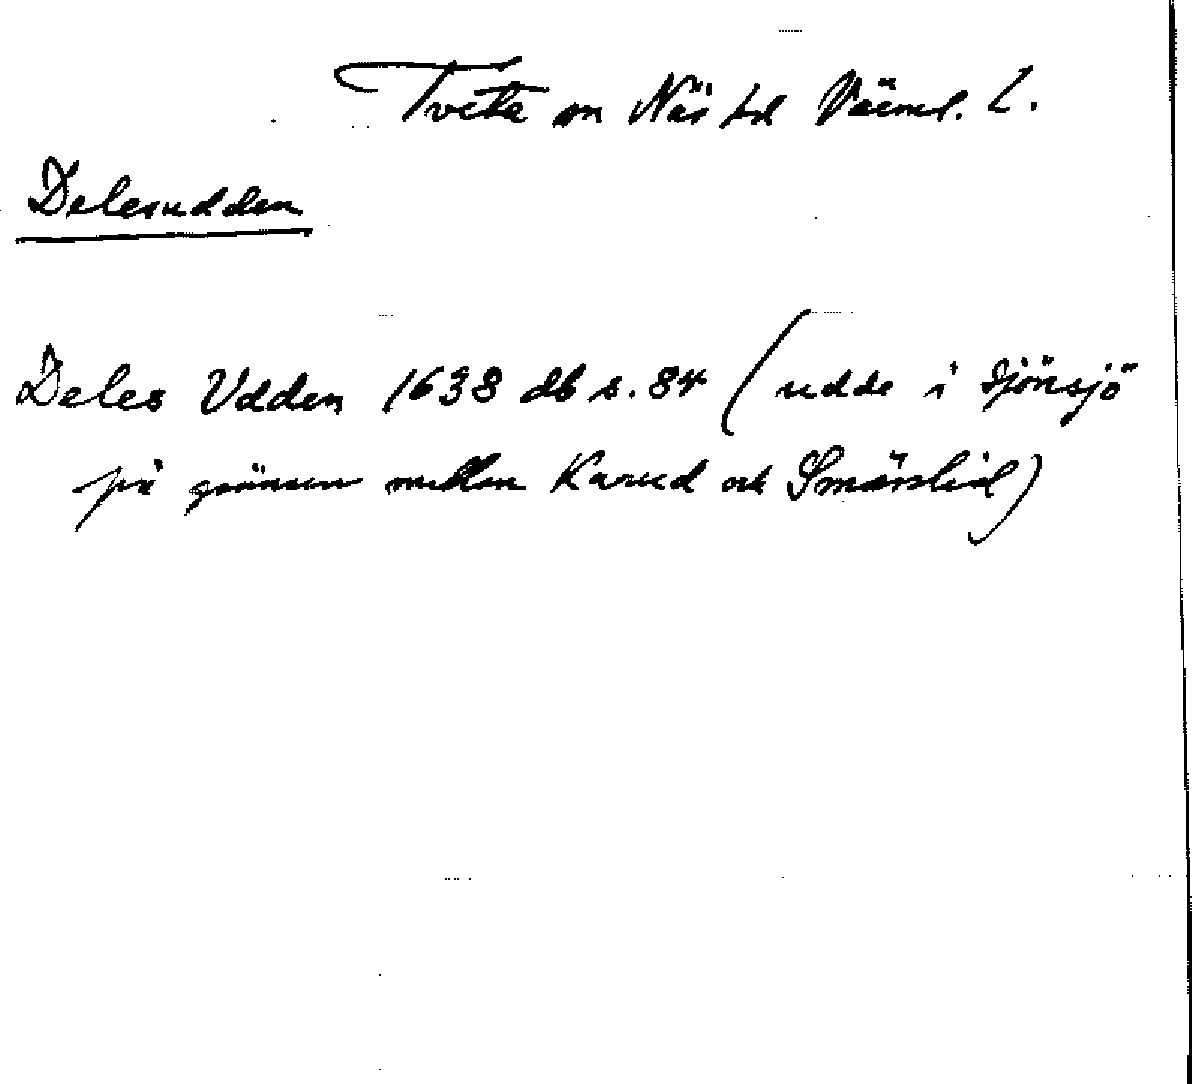 Tveta sn Näs hd Värml. L.
Delesudden
Deles Udden 1638 db s. 84 (udde i Sjönsjö
på gränsen mellan Karud och Smörslid)